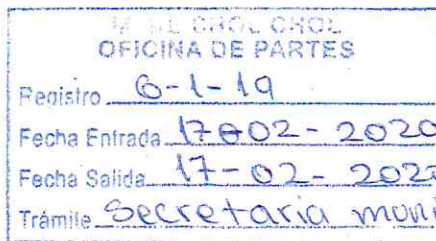 DE CHOL CHOL
OFICINA DE PARTES
Registro 6-1-19
Fecha Entrada 17-02-2020
Fecha Salida 17-02-202
Trámite Secretaria muni